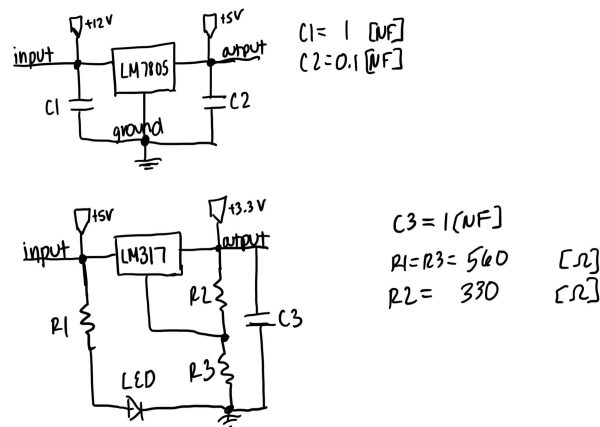 +12V +5V
input LM7805 output
C1 C2
ground
C1= 1 [NF]
C2=0.1[NF]
+5V +3.3V
input LM317 output
R2
R1 C3
LED R3
C3=1[NF]
R1=R3= 560 [Ω]
R2= 330 [Ω]